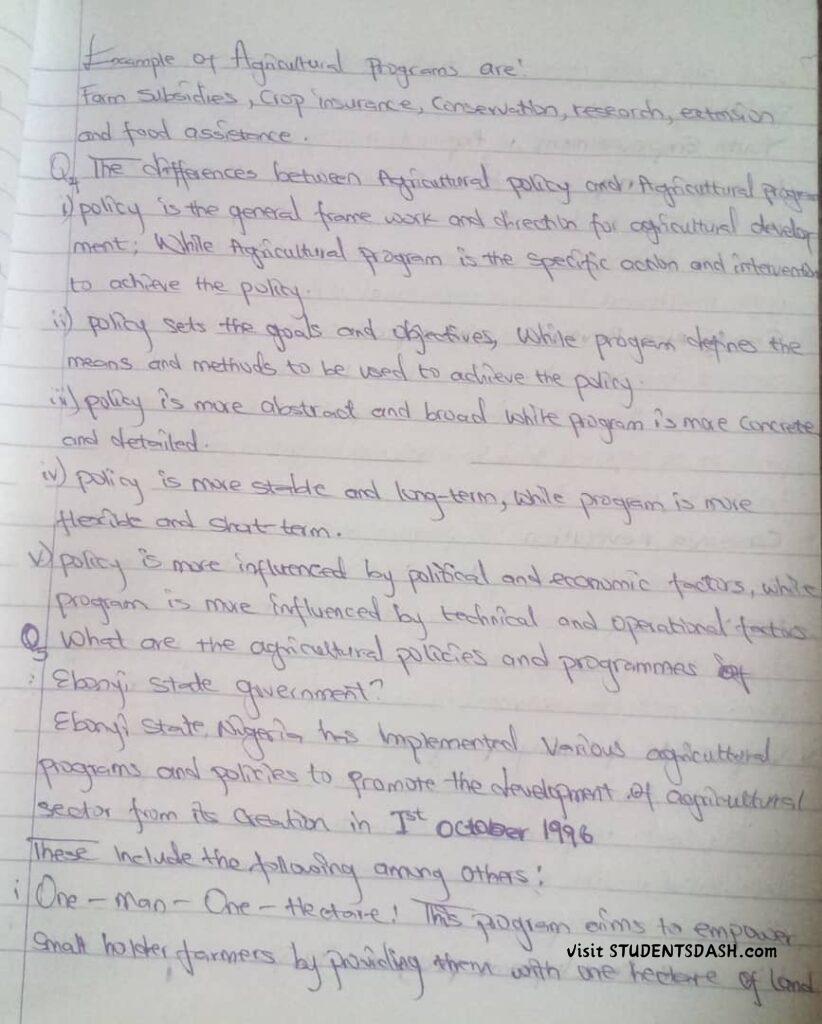 Example of Agricultural Programs are:
Farm Subsidies, Crop insurance, Conservation, research, extension
and food assistance.
Q4 The differences between Agricultural policy and Agricultural program
i) policy is the general frame work and direction for agricultural develop
ment; While Agricultural program is the specific action and intervention
to achieve the policy.
ii) policy sets the goals and objectives, While program defines the
means and methods to be used to achieve the policy.
iii) policy is more abstract and broad while program is more concrete
and detailed.
iv) policy is more stable and long-term, while program is more
flexible and short-term.
v) policy is more influenced by political and economic factors, while
program is more influenced by technical and operational factors
Q5 What are the agricultural policies and programmes of
: Ebonyi State government?
Ebonyi State, Nigeria has implemented various agricultural
programs and policies to promote the development of agricultural
sector from its creation in 1st October 1996
These include the following among others:
i One-man-One-Hectare: This program aims to empower
Small holder farmers by providing them with one hectare of land
visit STUDENTSDASH.com